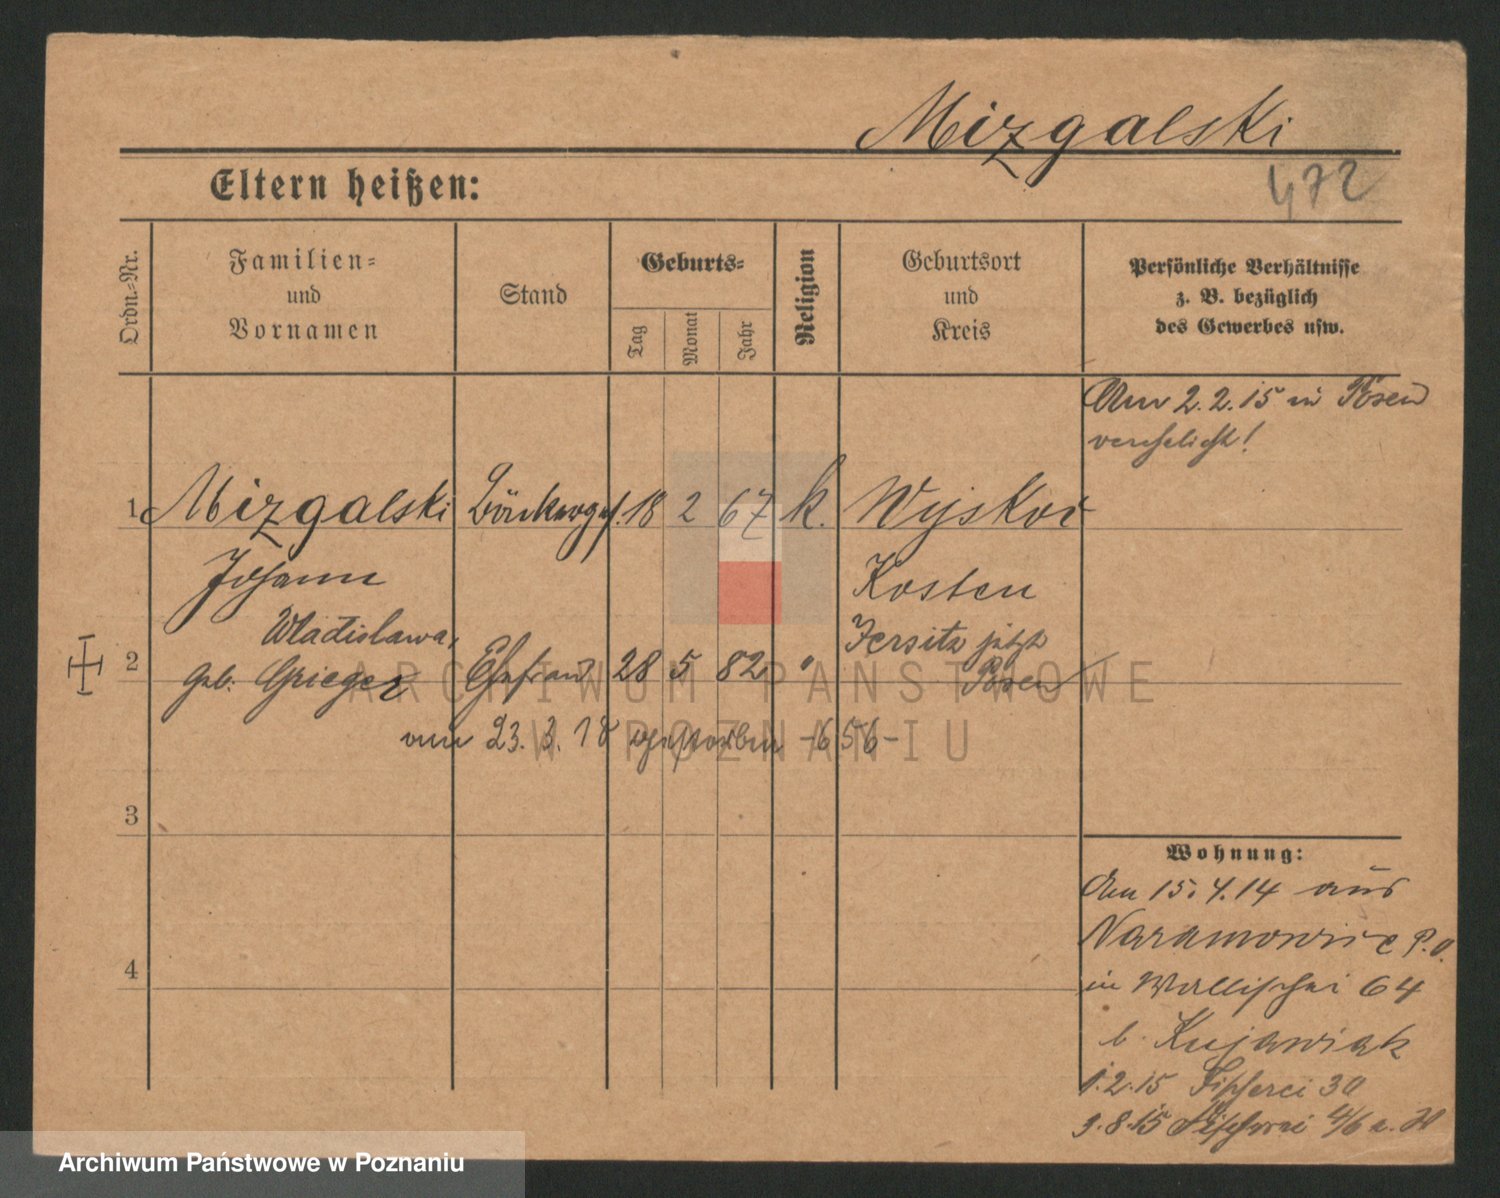 Mizgalski
Eltern heißen:
472
Ordn.-Nr.
Familien-
und
Vornamen
Stand
Geburts-
Tag
Monat
Jahr
Religion
Geburtsort
und
Kreis
Persönliche Verhältnisse
z. B. bezüglich
des Gewerbes usw.
Am 2.2.15 in Posen
verehelicht!
1 Mizgalski 18 2 67 k. Wyskoc
Johann Kosten
Wladislawa, Jersitz jetzt
2 geb. Grieger Ehefrau 28 5 82 " Posen
am 23. 3. 18 verstorben -656-
3
4
Wohnung:
Am 15.4.14 aus
Naramowice P.O.
in Wallischei 64
b. Kujawiak
1.2.15 Fischerei 30
3.8.15 Fischerei 4/6
ARCHIWUM PAŃSTWOWE
W POZNANIU
Archiwum Państwowe w Poznaniu